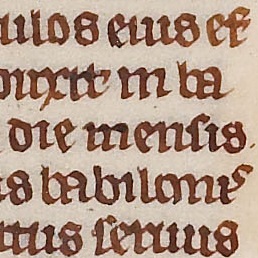 ulos eius ef
uxit in ba
die mensis.
is babilonis
itus seruus